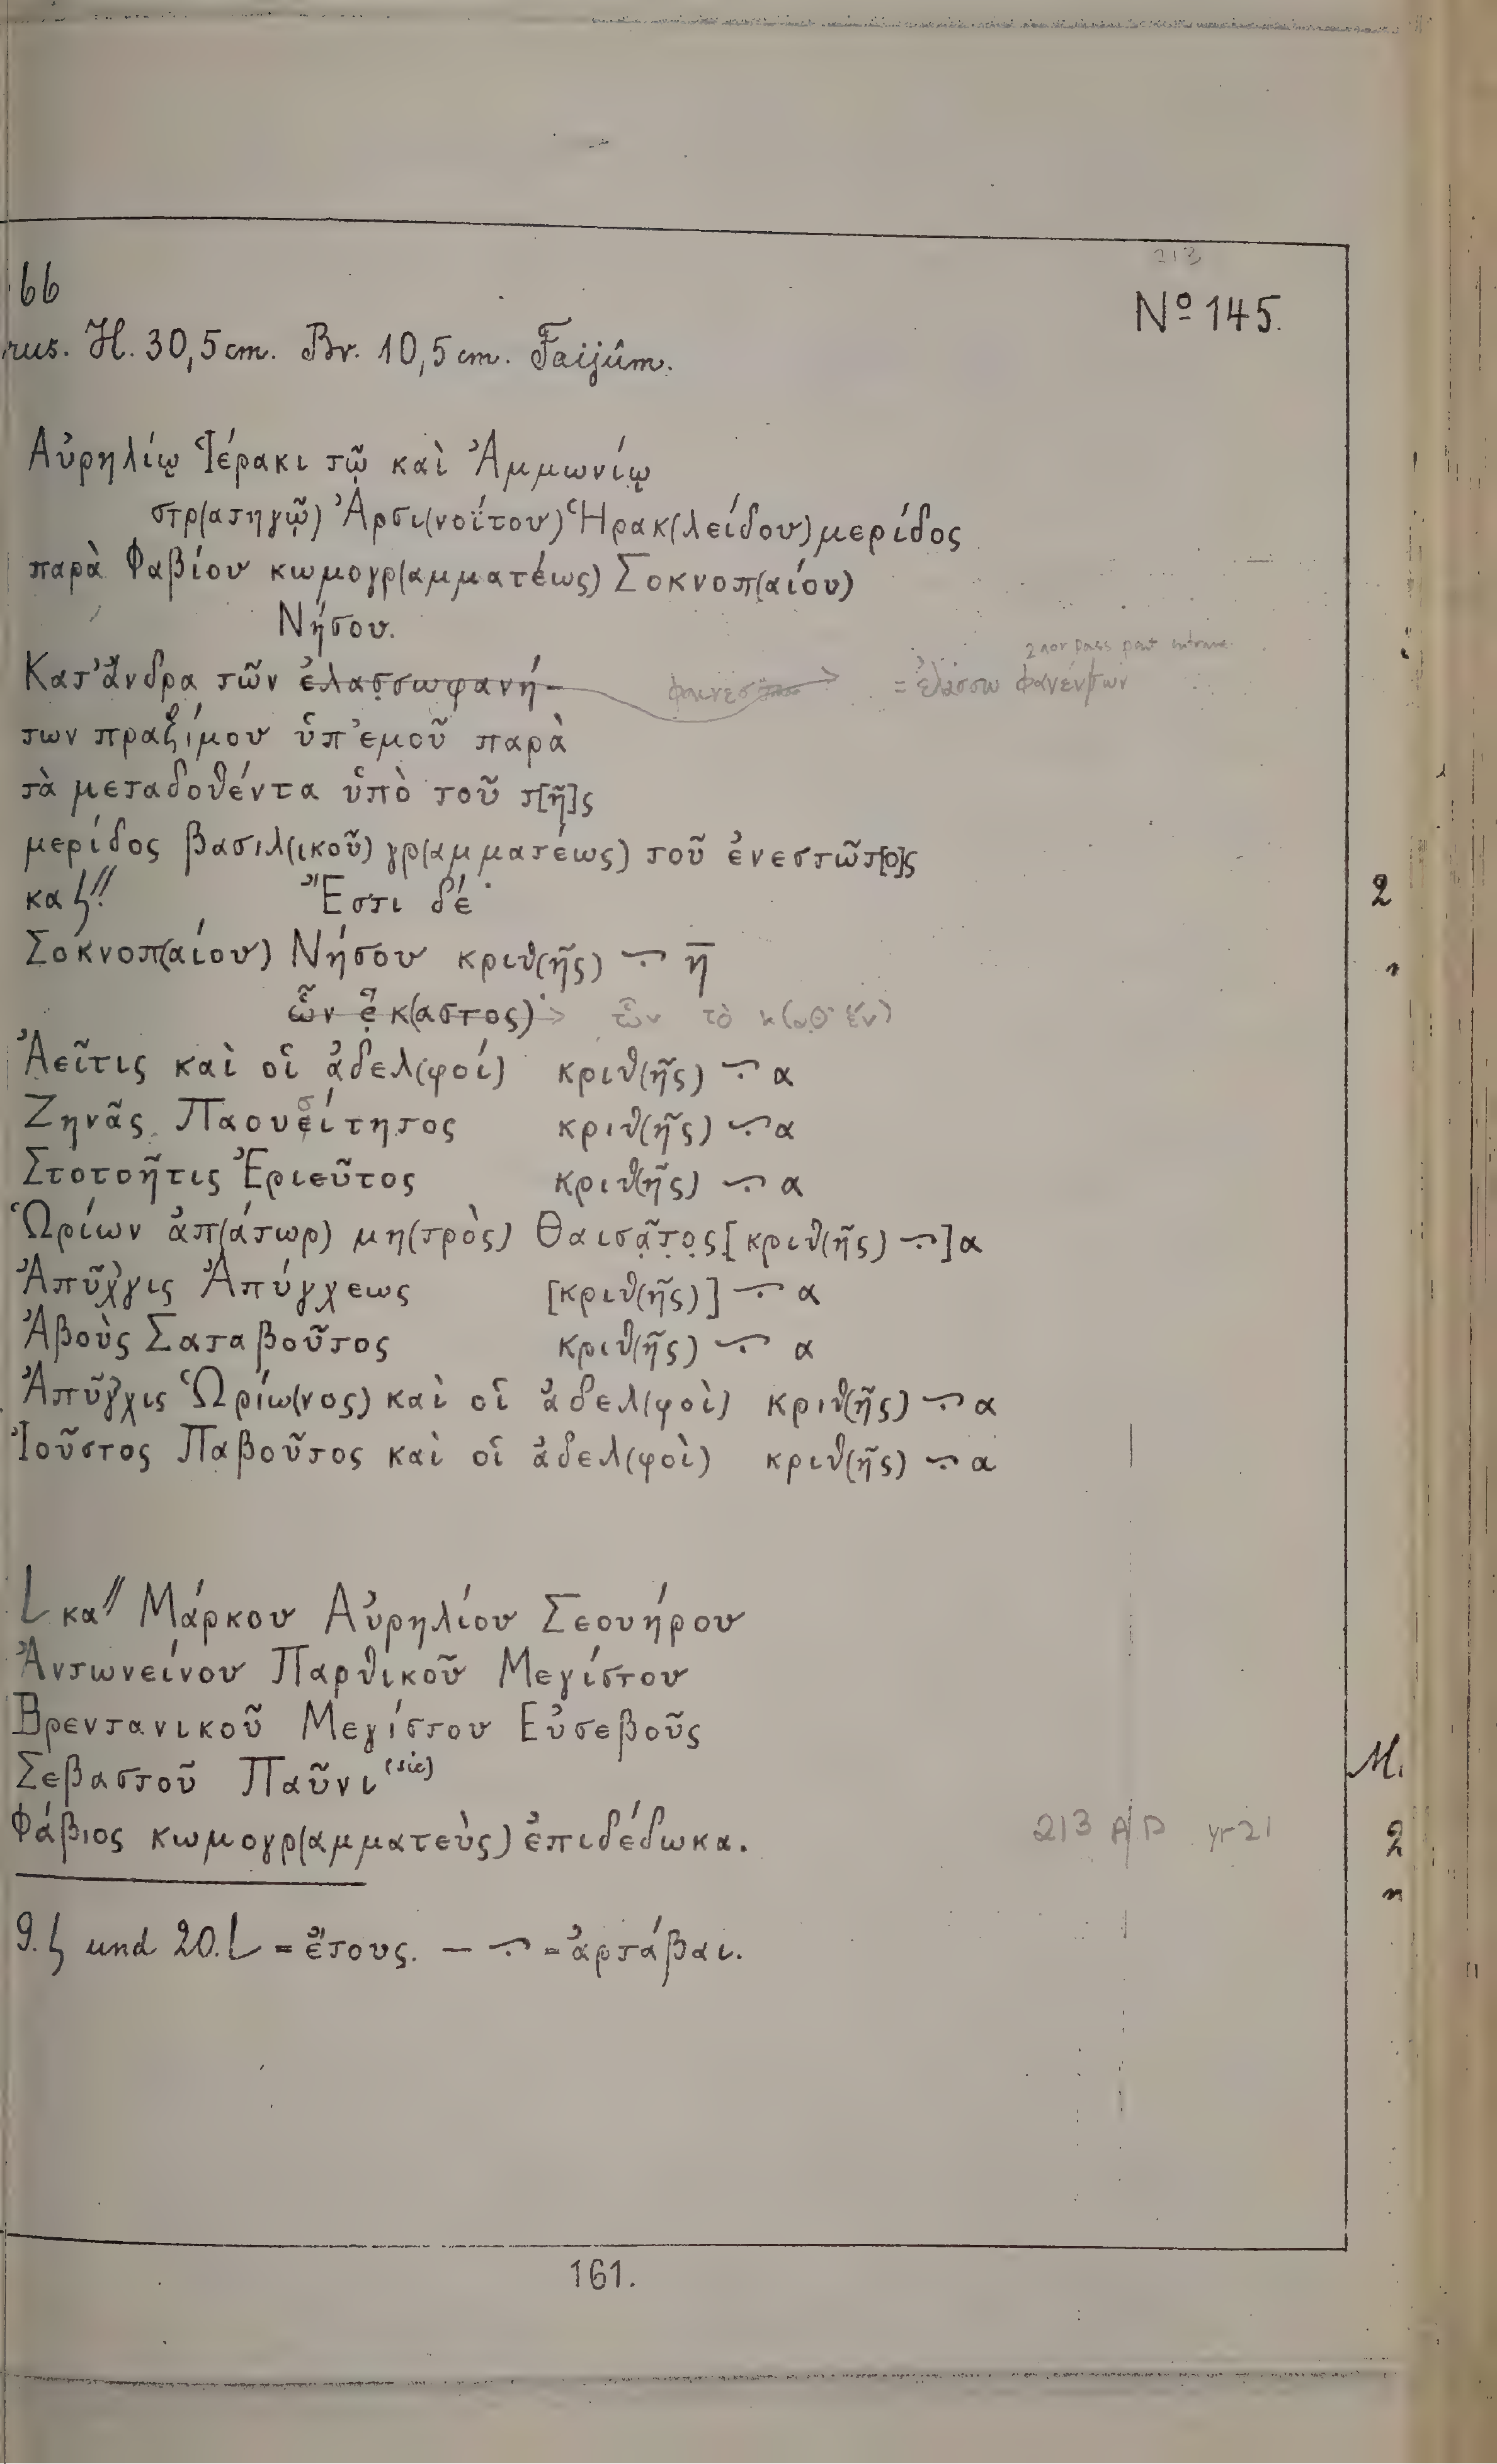 66
Nº 145.
rus. H. 30,5 cm. Br. 10,5 cm. Faijûm.
Αὐρηλίῳ Ἱέρακι τῷ καὶ Ἀμμωνίῳ
στρ(ατηγῷ) Ἀρσι(νοΐτου) Ἡρακ(λείδου) μερίδος
παρὰ Φαβίου κωμογρ(αμματέως) Σοκνοπ(αίου)
Νήσου.
Κατ' ἄνδρα τῶν ἐλασσωφανή- = ἐλάσσω φανέντων
των πραξίμου ὑπ' ἐμοῦ παρὰ
τὰ μεταδοθέντα ὑπὸ τοῦ τ[ῆ]ς
μερίδος βασιλ(ικοῦ) γρ(αμματέως) τοῦ ἐνεστῶτ[ο]ς
κα ϟ// Ἔστι δέ·
Σοκνοπ(αίου) Νήσου κριθ(ῆς) ⨪ η̅
ὧν ἕκ(αστος)· ὧν τὸ κ(αθ' ἕν)
Ἀεῖτις καὶ οἱ ἀδελ(φοί) κριθ(ῆς) ⨪ α
Ζηνᾶς Παουείτητος κριθ(ῆς) ⨪ α
Στοτοῆτις Ἐριεῦτος κριθ(ῆς) ⨪ α
Ὡρίων ἀπ(άτωρ) μη(τρὸς) Θαισᾶ̣τ̣ο̣ς̣ [κριθ(ῆς) ⨪] α
Ἀπῦγχις Ἀπύγχεως [κριθ(ῆς)] ⨪ α
Ἀβοὺς Σαταβοῦτος κριθ(ῆς) ⨪ α
Ἀπῦγχις Ὡρίω(νος) καὶ οἱ ἀδελ(φοὶ) κριθ(ῆς) ⨪ α
Ἰοῦστος Παβοῦτος καὶ οἱ ἀδελ(φοὶ) κριθ(ῆς) ⨪ α
L κα// Μάρκου Αὐρηλίου Σεουήρου
Ἀντωνείνου Παρθικοῦ Μεγίστου
Βρεντανικοῦ Μεγίστου Εὐσεβοῦς
Σεβαστοῦ Παῦνι (sic)
Φάβιος κωμογρ(αμματεὺς) ἐπιδέδωκα. 213 AD yr 21
9. ϟ und 20. L = ἔτους. — ⨪ = ἀρτάβαι.
161.